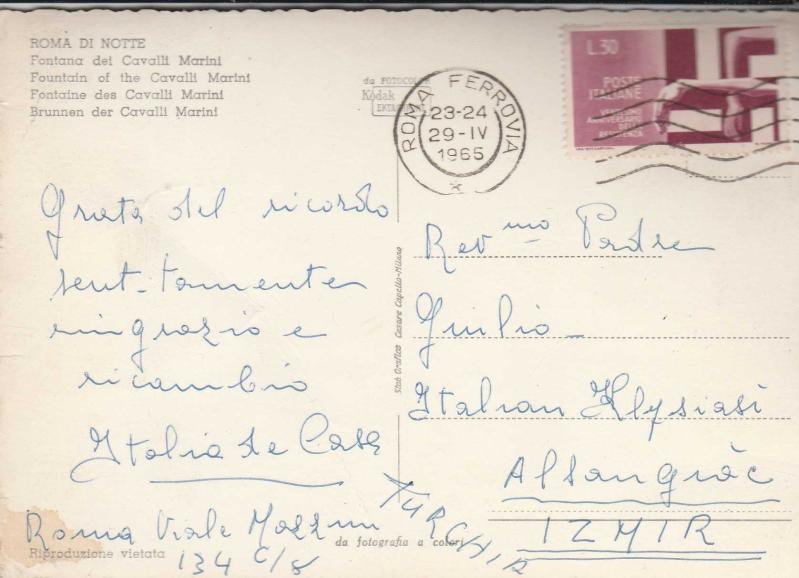 ROMA DI NOTTE
Fontana dei Cavalli Marini
Fountain of the Cavalli Marini
Fontaine des Cavalli Marini
Brunnen der Cavalli Marini
da FOTOCOLOR
Kodak
EKTACHROME
ROMA FERROVIA
23-24
29-IV
1965
L.30
POSTE
ITALIANE
ANNIVERSARIO
DELLA
RESISTENZA
Grata del ricordo
sent-tamente
ringrazio e
ricambio
Italia de Casa
Roma Viale Mazzini
134 c/8
Riproduzione vietata
Stab Grafico Cesare Capello-Milano
da fotografia a colori
Rev.mo Padre
Giulio
Italian Klysiasi
Alsangiàc
IZMIR
TURCHIA